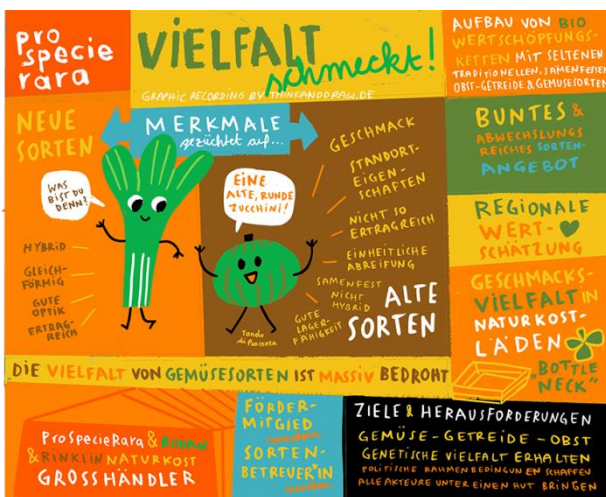 pro
specie
rara
VIELFALT
schmeckt!
GRAPHIC RECORDING BY THINKANDDRAW.DE
AUFBAU VON BIO
WERTSCHÖPFUNGS-
KETTEN MIT SELTENEN
TRADITIONELLEN, SAMENFESTEN
OBST-GETREIDE & GEMÜSESORTEN
NEUE
SORTEN
MERKMALE
gezüchtet auf...
WAS
BIST DU
DENN?
HYBRID
GLEICH-
FÖRMIG
GUTE
OPTIK
ERTRAG-
REICH
EINE
ALTE, RUNDE
ZUCCHINI!
GESCHMACK
STANDORT-
EIGEN-
SCHAFTEN
NICHT SO
ERTRAGREICH
EINHEITLICHE
ABREIFUNG
SAMENFEST
NICHT
HYBRID
GUTE
LAGER-
FÄHIGKEIT
Tondo
di Piacenza
ALTE
SORTEN
BUNTES &
ABWECHSLUNGS
REICHES SORTEN-
ANGEBOT
REGIONALE
WERT-
SCHÄTZUNG
GESCHMACKS-
VIELFALT IN
NATURKOST-
LÄDEN
"BOTTLE
NECK"
DIE VIELFALT VON GEMÜSESORTEN IST MASSIV BEDROHT
ProSpecieRara & BODAN
& RINKLIN NATURKOST
GROSSHÄNDLER
FÖRDER-
MITGIED
werden
SORTEN-
BETREUER*IN
werden
ZIELE & HERAUSFORDERUNGEN
GEMÜSE - GETREIDE - OBST
GENETISCHE VIELFALT ERHALTEN
POLITISCHE RAHMENBEDINGUNGEN SCHAFFEN
ALLE AKTEURE UNTER EINEN HUT BRINGEN